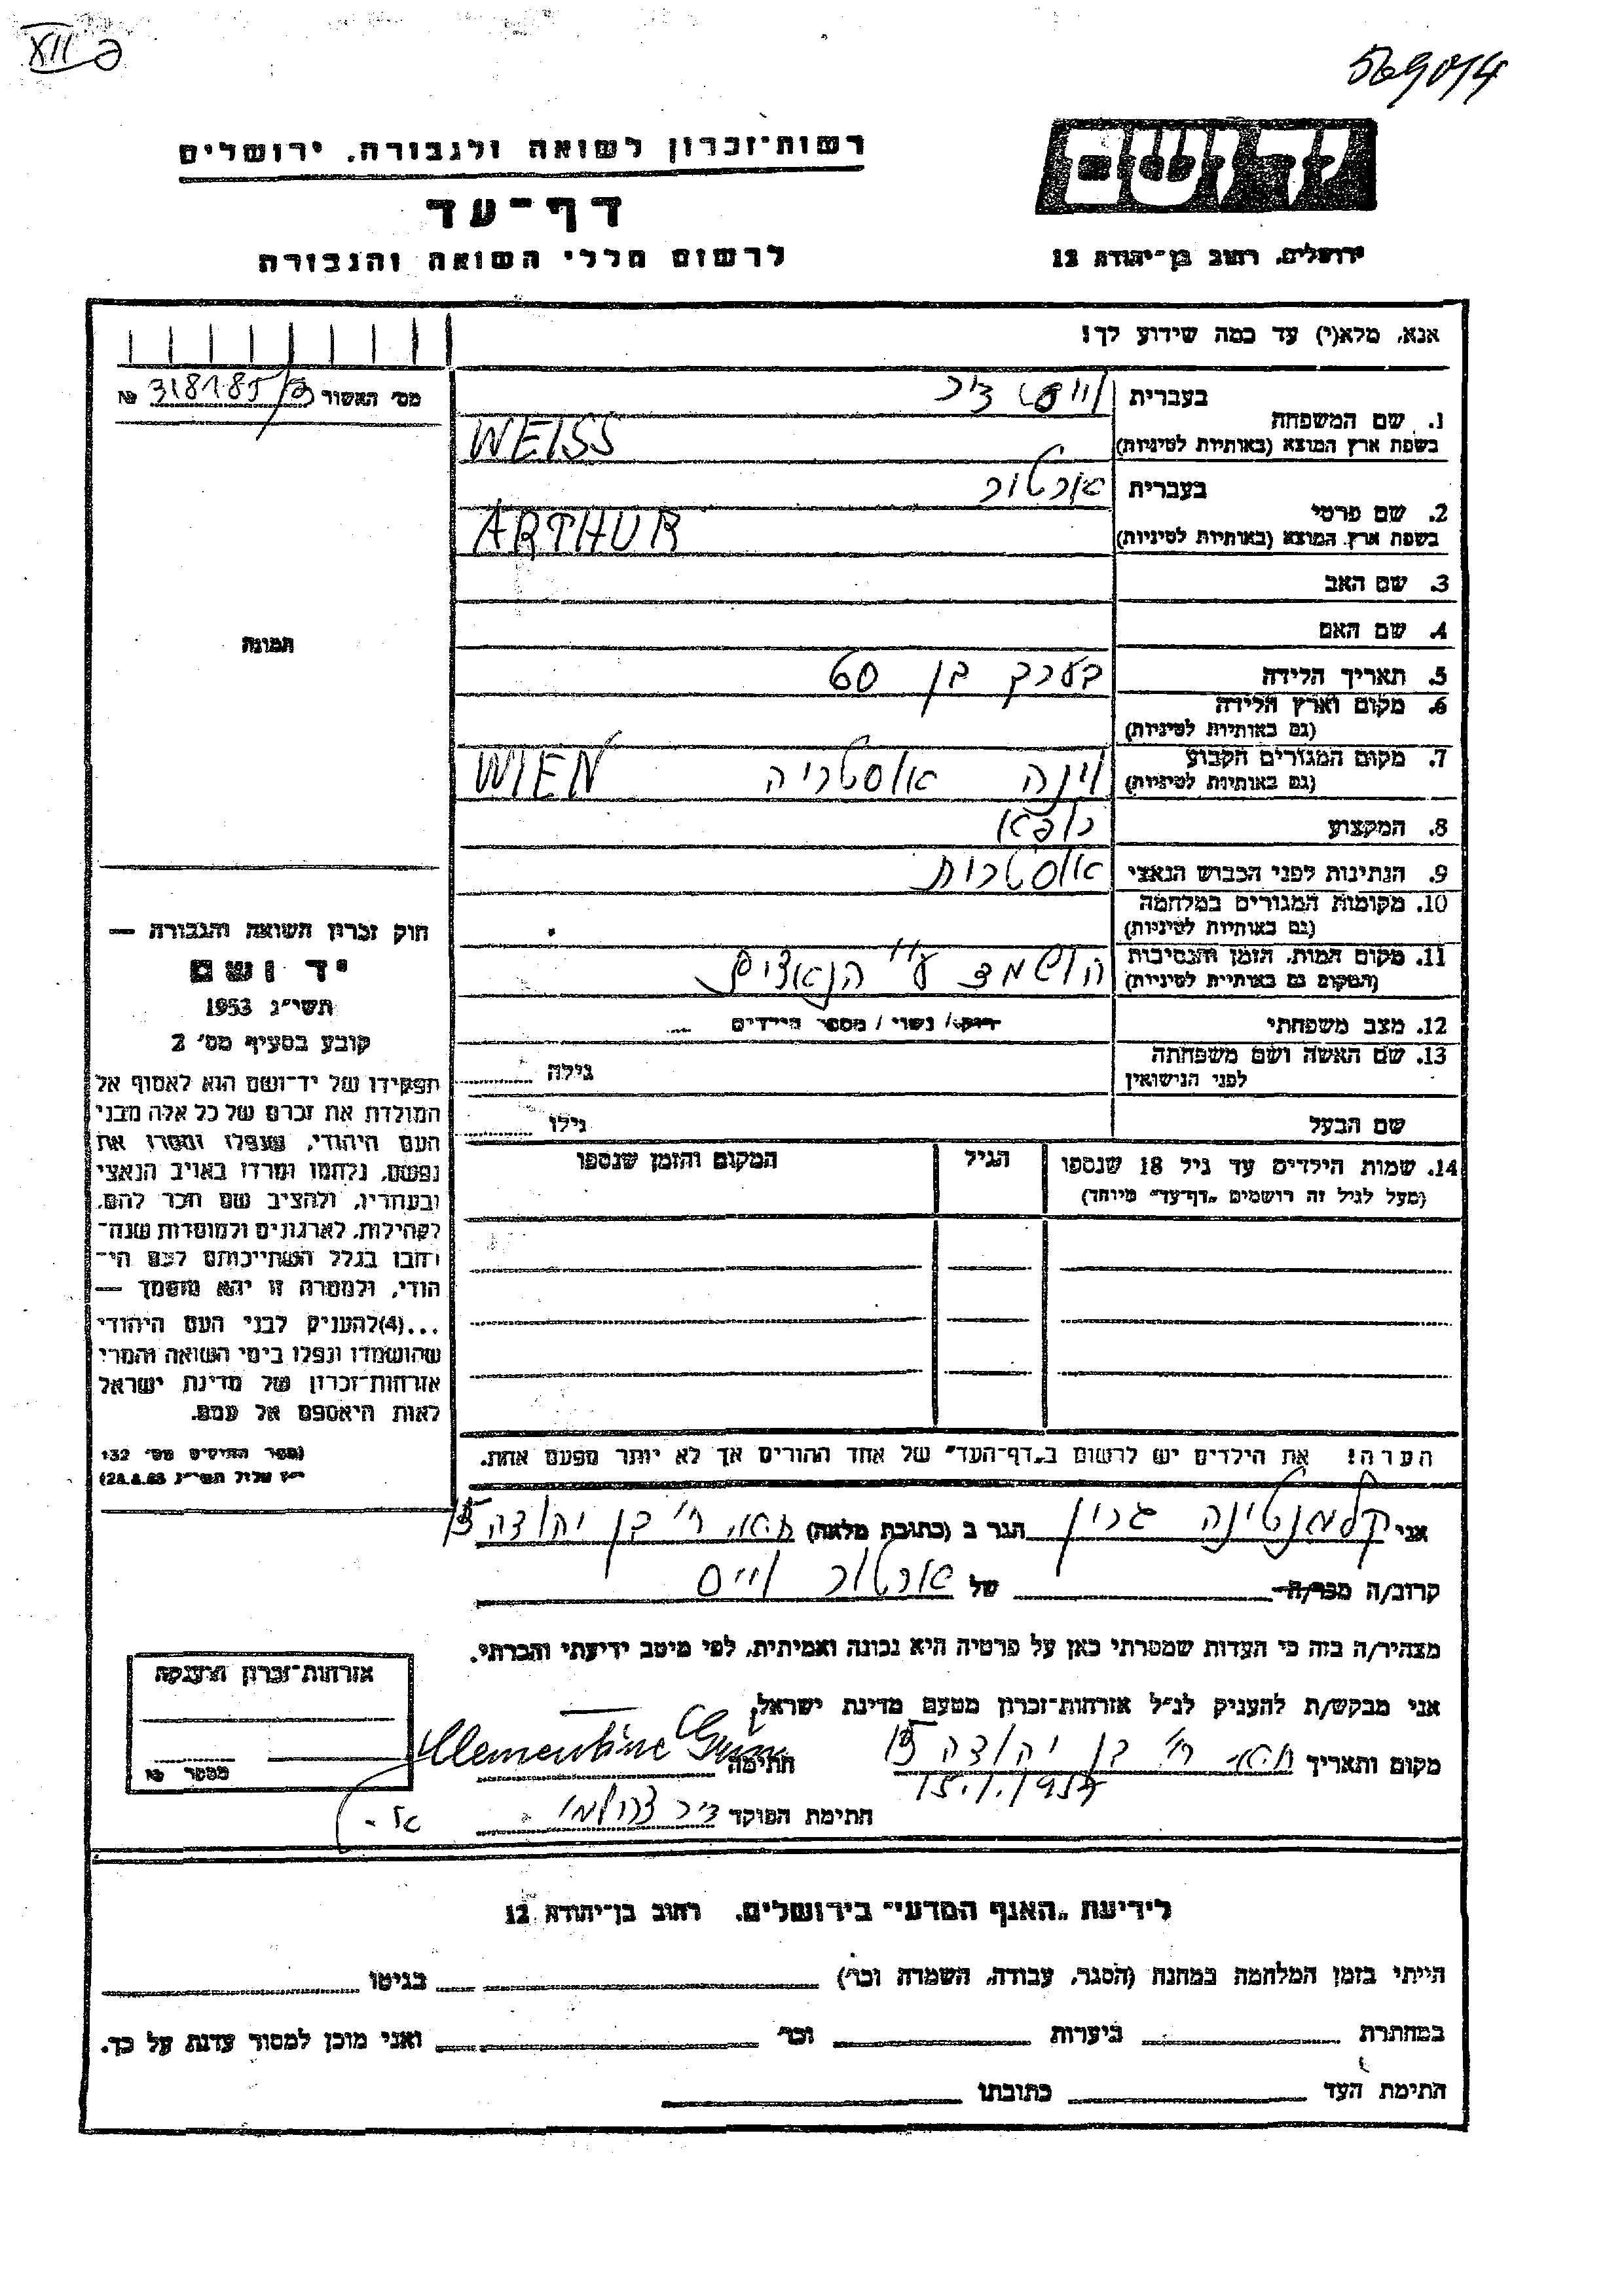 569014
יד ושם
רשות-זכרון לשואה ולגבורה, ירושלים
דף-עד
לרשום חללי השואה והגבורה
ירושלים, רחוב בן-יהודה 12
אנא, מלא(י) עד כמה שידוע לך!
מס' האשור 318185/ № 
1. שם המשפחה
בעברית וייס דיר
בשפת ארץ המוצא (באותיות לטיניות) WEISS
2. שם פרטי
בעברית ארטור
בשפת ארץ המוצא (באותיות לטיניות) ARTHUR
3. שם האב
4. שם האם
תמונה
5. תאריך הלידה בערך בן 60
6. מקום וארץ הלידה
(גם באותיות לטיניות)
7. מקום המגורים הקבוע וינה אוסטריה WIEN
(גם באותיות לטיניות)
8. המקצוע רופא
9. הנתינות לפני הכבוש הנאצי אוסטרית
10. מקומות המגורים במלחמה
(גם באותיות לטיניות)
11. מקום המות, הזמן והנסיבות הושמד ע"י הנאצים
(המקום גם באותיות לטיניות)
12. מצב משפחתי רווק / נשוי / מספר הילדים
13. שם האשה ושם משפחתה
לפני הנישואין גילה
שם הבעל גילו
14. שמות הילדים עד גיל 18 שנספו הגיל המקום והזמן שנספו
(מעל לגיל זה רושמים „דף-עד" מיוחד)
הערה! את הילדים יש לרשום ב„דף-העד" של אחד ההורים אך לא יותר מפעם אחת.
חוק זכרון השואה והגבורה —
יד ושם
תשי"ג 1953
קובע בסעיף מס' 2
תפקידו של יד-ושם הוא לאסוף אל
המולדת את זכרם של כל אלה מבני
העם היהודי, שנפלו ומסרו את
נפשם, נלחמו ומרדו באויב הנאצי
ובעוזריו, ולהציב שם וזכר להם,
לקהילות, לארגונים ולמוסדות שנח-
רבו בגלל השתייכותם לעם הי-
הודי, ולמטרה זו יהא מוסמך —
...(4) להעניק לבני העם היהודי
שהושמדו ונפלו בימי השואה והמרי
אזרחות-זכרון של מדינת ישראל
לאות היאספם אל עמם.
(ספר החוקים מס' 132
י"ז אלול תשי"ג 28.8.53)
אני קלמנטינה גרין הגר ב (כתובת מלאה) חיפה רח' בן יהודה 15
קרוב/ה מכר/ה של ארטור וייס
מצהיר/ה בזה כי העדות שמסרתי כאן על פרטיה היא נכונה ואמיתית, לפי מיטב ידיעתי והכרתי.
אני מבקש/ת להעניק לנ"ל אזרחות-זכרון מטעם מדינת ישראל.
מקום ותאריך חיפה רח' בן יהודה 15 חתימה Clementine Grün
15.1.1957
חתימת הפוקד
אזרחות-זכרון הוענקה
מספר №
לידיעת „האגף המדעי" בירושלים, רחוב בן-יהודה 12
הייתי בזמן המלחמה במחנה (הסגר, עבודה, השמדה וכו') בגיטו
במחתרת ביערות וכו' ואני מוכן למסור עדות על כך.
חתימת העד כתובתו